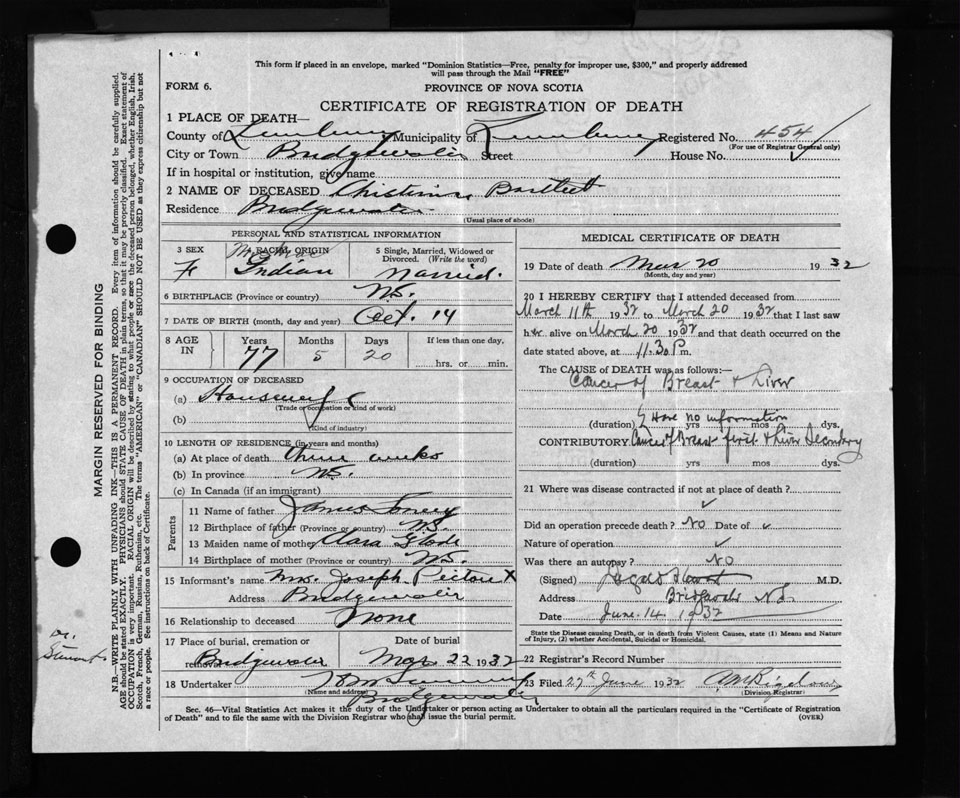 This form if placed in an envelope, marked "Dominion Statistics—Free, penalty for improper use, $300," and properly addressed
will pass through the Mail "FREE"
FORM 6.
PROVINCE OF NOVA SCOTIA
CERTIFICATE OF REGISTRATION OF DEATH
1 PLACE OF DEATH—
County of Lunenburg Municipality of Lunenburg Registered No. 454
(For use of Registrar General only)
City or Town Bridgewater Street House No.
If in hospital or institution, give name
2 NAME OF DECEASED Bartlett
Residence Bridgewater
(Usual place of abode)
PERSONAL AND STATISTICAL INFORMATION
3 SEX F
RACIAL ORIGIN Indian
5 Single, Married, Widowed or
Divorced. (Write the word)
Married.
6 BIRTHPLACE (Province or country) N.S.
7 DATE OF BIRTH (month, day and year) Oct. 14
8 AGE IN
Years Months Days If less than one day,
77 5 20 hrs. or min.
9 OCCUPATION OF DECEASED
(a) Housewife
(Trade or occupation or kind of work)
(b)
(Kind of industry)
10 LENGTH OF RESIDENCE (in years and months)
(a) At place of death three weeks
(b) In province N.S.
(c) In Canada (if an immigrant)
Parents
11 Name of father James
12 Birthplace of father (Province or country) N.S.
13 Maiden name of mother Clara Glode
14 Birthplace of mother (Province or country) N.S.
15 Informant's name Mrs. Joseph Pictou X
Address Bridgewater
16 Relationship to deceased None
17 Place of burial, cremation or
removal Bridgewater
Date of burial
Mar 22 1932
18 Undertaker
(Name and address) Bridgewater
MEDICAL CERTIFICATE OF DEATH
19 Date of death Mar 20 1932
(Month, day and year)
20 I HEREBY CERTIFY that I attended deceased from
March 11th 1932 to March 20 1932 that I last saw
her alive on March 20 1932 and that death occurred on the
date stated above, at 11.30 P.m.
The CAUSE OF DEATH was as follows:
Cancer of Breast & Liver
(duration) I Have no information yrs mos dys.
CONTRIBUTORY Cancer of Breast first & Liver Secondary
(duration) yrs mos dys.
21 Where was disease contracted if not at place of death?
Did an operation precede death? No Date of
Nature of operation
Was there an autopsy? No
(Signed) M.D.
Address Bridgewater N.S.
Date June 14 1932
State the Disease causing Death, or in death from Violent Causes, state (1) Means and Nature
of Injury, (2) whether Accidental, Suicidal or Homicidal.
22 Registrar's Record Number
23 Filed 27th June 1932
(Division Registrar)
Sec. 46—Vital Statistics Act makes it the duty of the Undertaker or person acting as Undertaker to obtain all the particulars required in the "Certificate of Registration
of Death" and to file the same with the Division Registrar who shall issue the burial permit. (OVER)
MARGIN RESERVED FOR BINDING
N.B.—WRITE PLAINLY WITH UNFADING INK—THIS IS A PERMANENT RECORD. Every item of information should be carefully supplied.
AGE should be stated EXACTLY. PHYSICIANS should STATE CAUSE OF DEATH in plain terms, so that it may be properly classified. Exact statement of
OCCUPATION is very important. RACIAL ORIGIN will be described by stating to what people or race the deceased person belonged, whether English, Irish,
Scotch, French, German, Russian, Ruthenian, etc. The terms "AMERICAN" or "CANADIAN" SHOULD NOT BE USED as they express citizenship but not
a race or people. See instructions on back of Certificate.